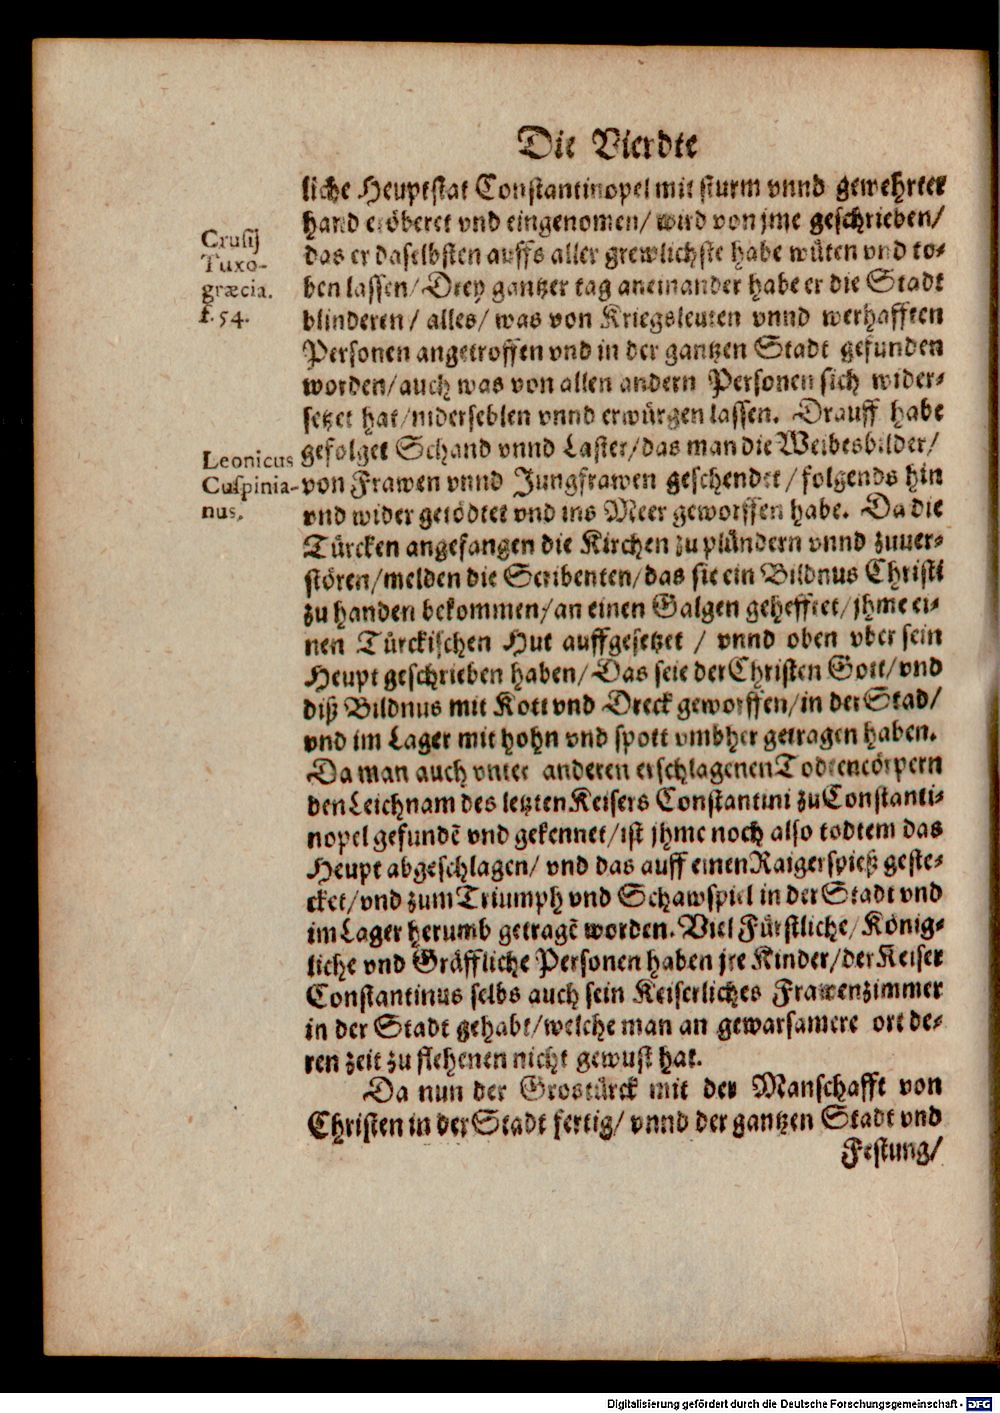 Die Vierdte
liche Heuptstat Constantinopel mit sturm vnnd gewehrter
hand eröberet vnd eingenomen/ wird von jme geschrieben/
das er daselbsten auffs aller grewlichste habe wüten vnd to-
ben lassen/ Drey gantzer tag aneinander habe er die Stadt
blinderen/ alles/ was von Kriegsleuten vnnd werhafften
Personen angetroffen vnd in der gantzen Stadt gefunden
worden/ auch was von allen andern Personen sich wider-
setzet hat/ niderseblen vnnd erwürgen lassen. Drauff habe
gefolget Schand vnnd Laster/ das man die Weibesbilder/
von Frawen vnnd Jungfrawen geschendet/ folgends hin
vnd wider getödtet vnd ins Meer geworffen habe. Da die
Türcken angefangen die Kirchen zu plündern vnnd zuuer-
stören/ melden die Scribenten/ das sie ein Bildnus Christi
zu handen bekommen/ an einen Galgen gehefftet/ jhme ei-
nen Türckischen Hut auffgesetzet / vnnd oben vber sein
Heupt geschrieben haben/ Das seie der Christen Gott/ vnd
diß Bildnus mit Kott vnd Dreck geworffen/ in der Stad/
vnd im Lager mit hohn vnd spott vmbher getragen haben.
Da man auch vnter anderen erschlagenen Todtencörpern
den Leichnam des letzten Keisers Constantini zu Constanti-
nopel gefundē vnd gekennet/ ist jhme noch also todtem das
Heupt abgeschlagen/ vnd das auff einen Raigerspieß geste-
cket/ vnd zum Triumph vnd Schawspiel in der Stadt vnd
im Lager herumb getragē worden. Viel Fürstliche/ König-
liche vnd Gräffliche Personen haben jre Kinder/ der Keiser
Constantinus selbs auch sein Keiserliches Frawenzimmer
in der Stadt gehabt/ welche man an gewarsamere ort de-
ren zeit zu flehenen nicht gewust hat.
Da nun der Grostürck mit der Manschafft von
Christen in der Stadt fertig/ vnnd der gantzen Stadt vnd
Festung/
Crusij
Tuxo-
græcia.
f. 54.
Leonicus
Cuspinia-
nus.
Digitalisierung gefördert durch die Deutsche Forschungsgemeinschaft - DFG